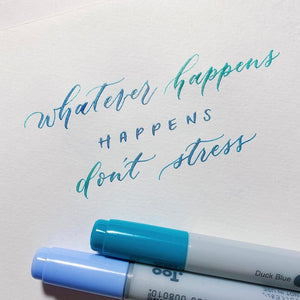 whatever happens
HAPPENS
don't stress
Duck Blue
.Too